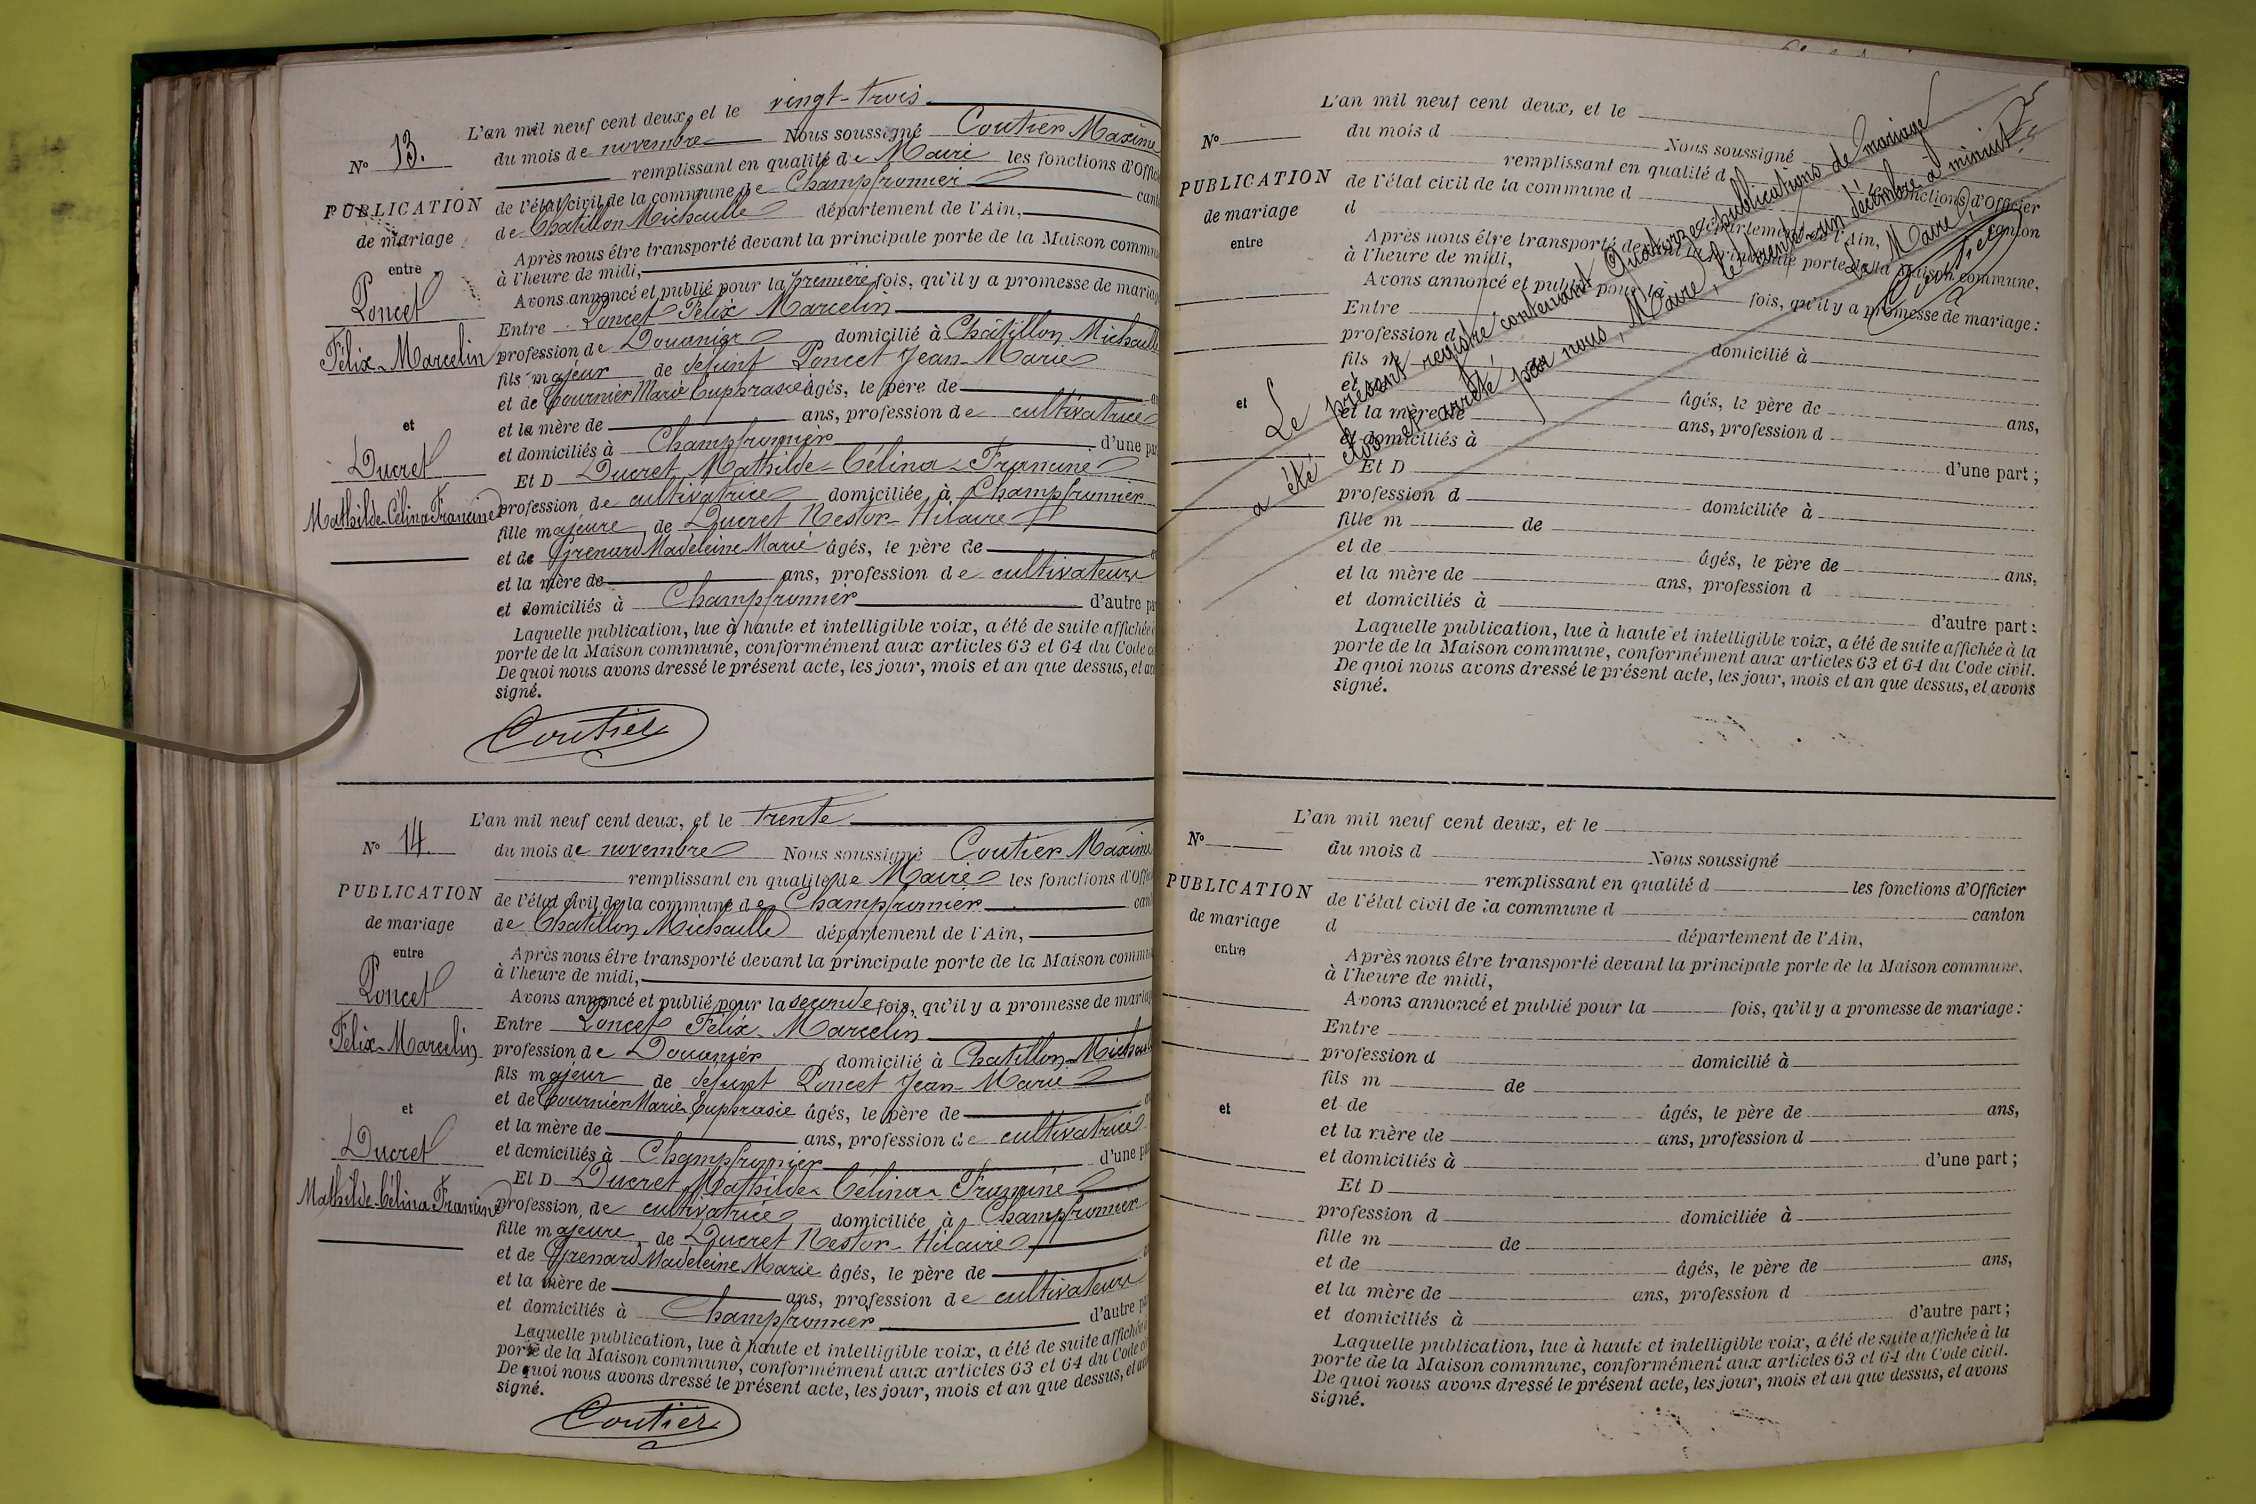 L'an mil neuf cent deux, et le vingt-trois
N° 13. du mois de novembre Nous soussigné Coutier Maxime
remplissant en qualité de Maire les fonctions d'Offici
PUBLICATION de l'état civil de la commune de Champfromier cant
de mariage de Chatillon Michaille département de l'Ain,
Après nous être transporté devant la principale porte de la Maison commun
entre à l'heure de midi,
Avons annoncé et publié pour la première fois, qu'il y a promesse de mariag
Poncet Entre Poncet Félix Marcelin
Félix-Marcelin profession de Douanier domicilié à Châtillon Michaille
fils majeur de défunt Poncet Jean-Marie
et de Tournier Marie Euphrasie âgés, le père de
et la mère de ans, profession de cultivatrice
et et domiciliés à Champfromier d'une pa
Ducret Et D Ducret Mathilde-Célina-Francine
Mathilde-Célina Francine profession de cultivatrice domiciliée à Champfromier
fille majeure de Ducret Nestor-Hilaire
et de Grenard Madeleine Marie âgés, le père de
et la mère de ans, profession de cultivateurs
et domiciliés à Champfromier d'autre pa
Laquelle publication, lue à haute et intelligible voix, a été de suite affichée
porte de la Maison commune, conformément aux articles 63 et 64 du Code c
De quoi nous avons dressé le présent acte, les jour, mois et an que dessus, et av
signé.
Coutier
L'an mil neuf cent deux, et le trente
N° 14. du mois de novembre Nous soussigné Coutier Maxime
remplissant en qualité de Maire les fonctions d'Offic
PUBLICATION de l'état civil de la commune de Champfromier cant
de mariage de Chatillon Michaille département de l'Ain,
Après nous être transporté devant la principale porte de la Maison commu
entre à l'heure de midi,
Avons annoncé et publié pour la seconde fois, qu'il y a promesse de maria
Poncet Entre Poncet Félix-Marcelin
Félix-Marcelin profession de Douanier domicilié à Chatillon-Michail
fils majeur de défunt Poncet Jean-Marie
et de Tournier Marie Euphrasie âgés, le père de
et la mère de ans, profession de cultivatrice
et et domiciliés à Champfromier d'une pa
Ducret Et D Ducret Mathilde-Célina-Francine
Mathilde-Célina Francine profession de cultivatrice domiciliée à Champfromier
fille majeure de Ducret Nestor-Hilaire
et de Grenard Madeleine Marie âgés, le père de
et la mère de ans, profession de cultivateurs
et domiciliés à Champfromier d'autre pa
Laquelle publication, lue à haute et intelligible voix, a été de suite affichée
porte de la Maison commune, conformément aux articles 63 et 64 du Code c
De quoi nous avons dressé le présent acte, les jour, mois et an que dessus, et av
signé.
Coutier
L'an mil neuf cent deux, et le
N° du mois d Nous soussigné
remplissant en qualité d les fonctions d'Officier
PUBLICATION de l'état civil de la commune d canton
de mariage d département de l'Ain,
entre Après nous être transporté devant la principale porte de la Maison commune,
à l'heure de midi,
Avons annoncé et publié pour la fois, qu'il y a promesse de mariage :
Entre
profession d domicilié à
fils m de
et de âgés, le père de ans,
et et la mère de ans, profession d
et domiciliés à d'une part ;
Et D
profession d domiciliée à
fille m de
et de âgés, le père de ans,
et la mère de ans, profession d
et domiciliés à d'autre part :
Laquelle publication, lue à haute et intelligible voix, a été de suite affichée à la
porte de la Maison commune, conformément aux articles 63 et 64 du Code civil.
De quoi nous avons dressé le présent acte, les jour, mois et an que dessus, et avons
signé.
Le présent registre contenant Quatorze publications de mariage
a été clos et arrêté par nous, Maire, le trente-un décembre à minuit
Le Maire,
Coutier
L'an mil neuf cent deux, et le
N° du mois d Nous soussigné
remplissant en qualité d les fonctions d'Officier
PUBLICATION de l'état civil de la commune d canton
de mariage d département de l'Ain,
entre Après nous être transporté devant la principale porte de la Maison commune,
à l'heure de midi,
Avons annoncé et publié pour la fois, qu'il y a promesse de mariage :
Entre
profession d domicilié à
fils m de
et et de âgés, le père de ans,
et la mère de ans, profession d
et domiciliés à d'une part ;
Et D
profession d domiciliée à
fille m de
et de âgés, le père de ans,
et la mère de ans, profession d
et domiciliés à d'autre part ;
Laquelle publication, lue à haute et intelligible voix, a été de suite affichée à la
porte de la Maison commune, conformément aux articles 63 et 64 du Code civil.
De quoi nous avons dressé le présent acte, les jour, mois et an que dessus, et avons
signé.